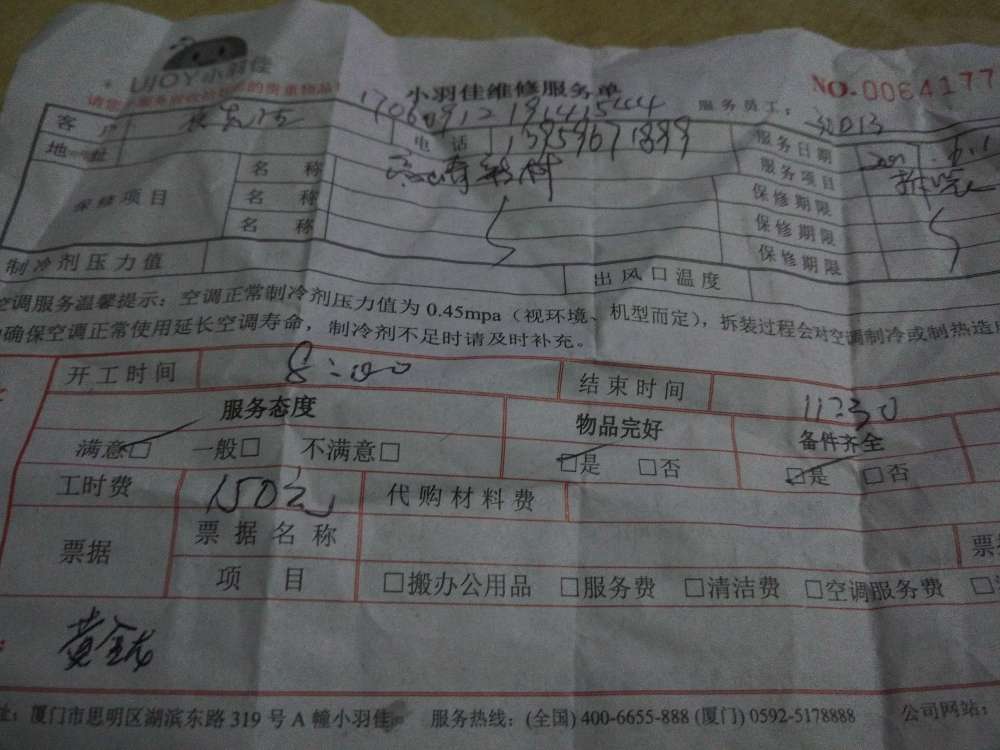 UJOY小羽佳
小羽佳维修服务单
NO.0064177
服务员工:
客户 电话 13959671899 服务日期
地址 服务项目
保修项目 名称 保修期限
名称 保修期限
名称 保修期限
制冷剂压力值 出风口温度
空调服务温馨提示:空调正常制冷剂压力值为0.45mpa(视环境、机型而定),拆装过程会对空调制冷或制热造
确保空调正常使用延长空调寿命,制冷剂不足时请及时补充。
开工时间 8:00 结束时间 11:30
服务态度 物品完好 备件齐全
满意□ 一般□ 不满意□ □是 □否 □是 □否
工时费 150元 代购材料费
票据 票据名称
项目 □搬办公用品 □服务费 □清洁费 □空调服务费
黄金龙
址:厦门市思明区湖滨东路319号A幢小羽佳 服务热线:(全国)400-6655-888 (厦门)0592-5178888 公司网站: